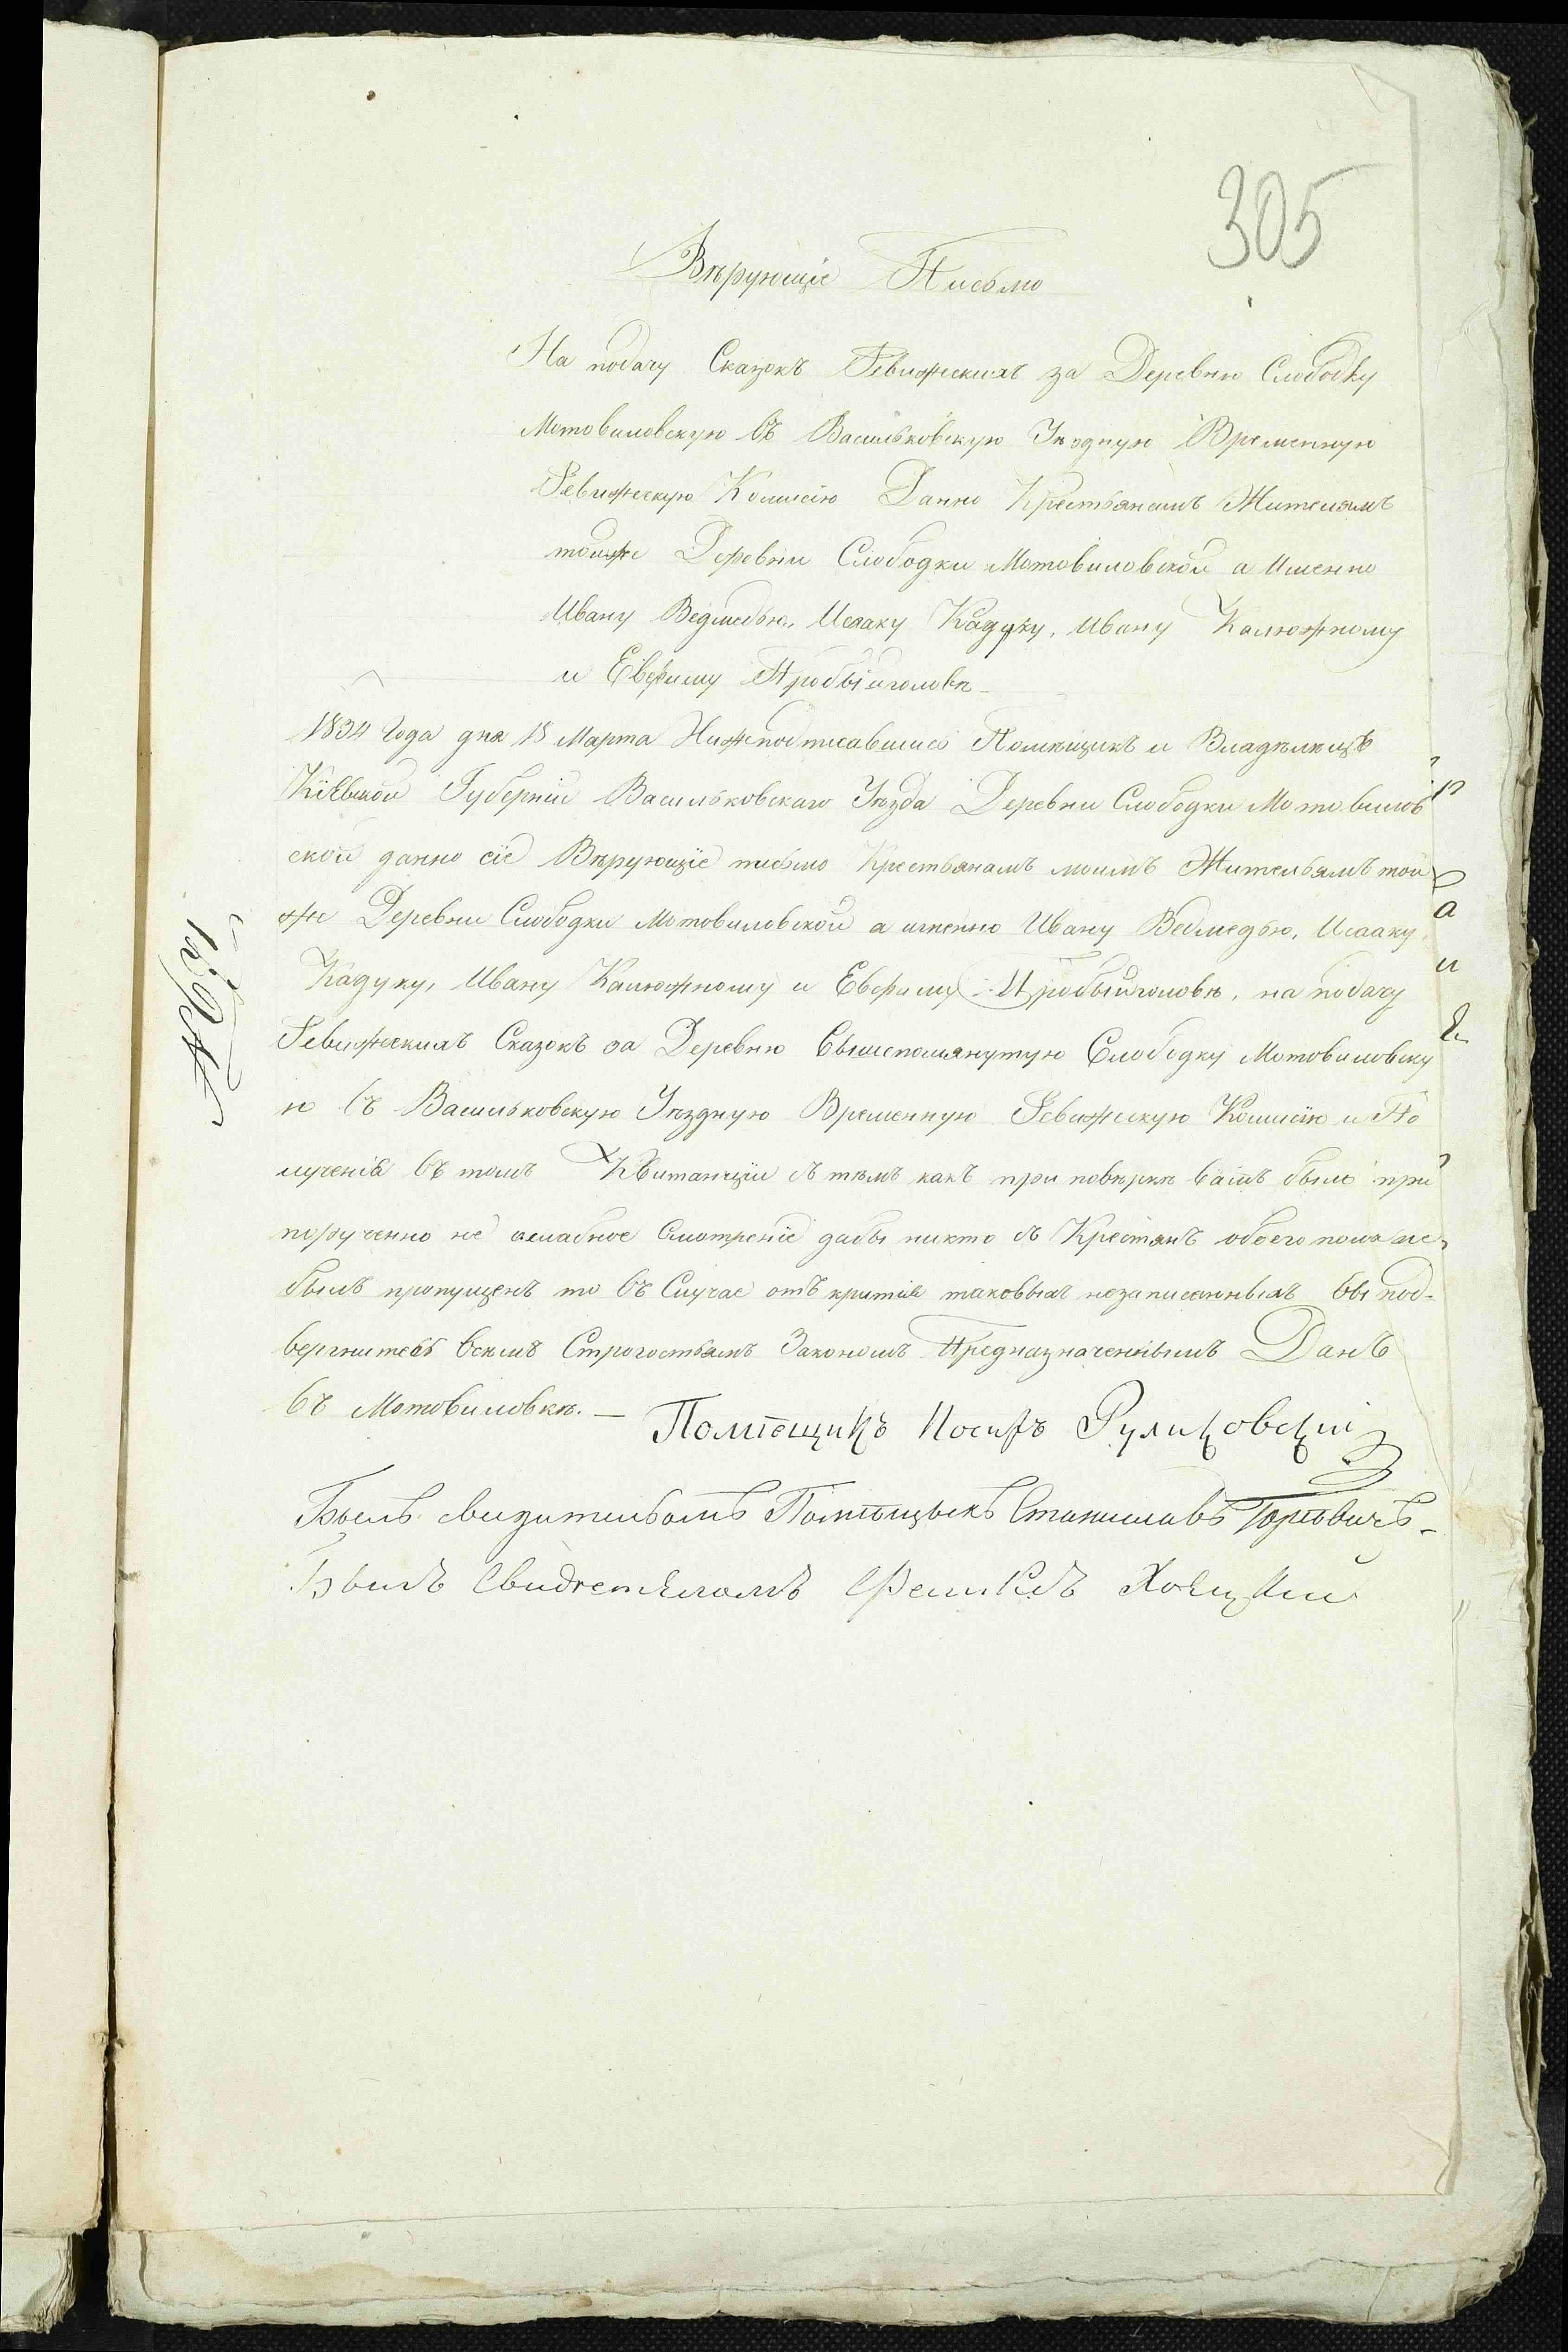 305
Вѣрующіе Письмо
На подачу Сказокъ Ревижскихъ за Деревню Слободку
Мотовиловскую въ Васильковскую Уѣздную Временную
Ревижскую Комисію Данно Крестьянамъ Жителямъ
тойже Деревни Слободки Мотовиловской а Именно
Ивану Ведмедью, Исааку Кадуку, Ивану Калюжному
и Евфиму Пробыйголовѣ
1834 Года дня 15 Марта Нижеподписавшись Помѣщикъ и Владѣлецъ
Кіевской Губерніи Васильковскаго Уѣзда Деревни Слободки Мотовилов
ской данно сіе Вѣрующіе письмо Крестьянамъ моимъ Жительямъ той
же Деревни Слободки Мотовиловской а именно Ивану Ведмедью, Исааку
Кадуку, Ивану Калюжному и Евфиму Пробыйголовѣ, на подачу
Ревижскихъ Сказокъ за Деревню Вышепомянутую Слободку Мотовиловску
ю въ Васильковскую Уѣздную Временную Ревижскую Комисію и По
лученія въ томъ Квитанціи съ тѣмъ какъ при повѣркѣ вамъ было при
порученно не ослабное Смотреніе дабы никто съ Крестянъ обоего пола не
былъ пропущенъ то въ Случае отъкритія таковыхъ незаписанныхъ вы под-
вергнитесь всѣмъ Строгостьямъ Закономъ Предназначеннымъ Данъ
въ Мотовиловкѣ. — Помѣщикъ Іосифъ Руликовскій
Былъ свидителемъ Помѣщыкъ Станиславъ
Былъ Свидетелемъ Феликсъ